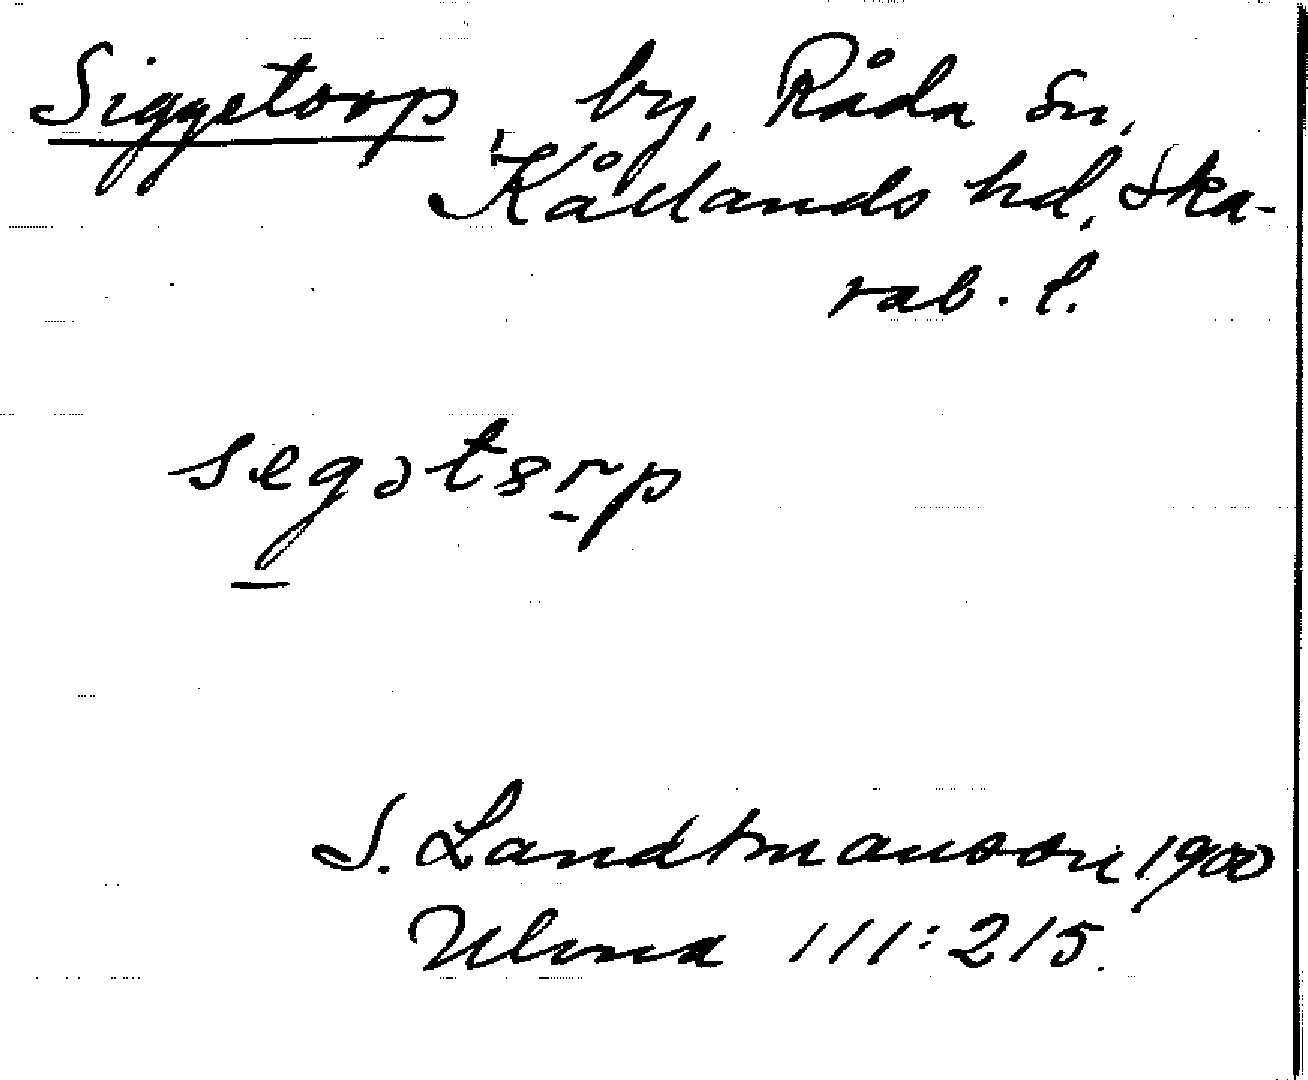 Siggetorp, by, Råda sn,
Kållands hd, Ska-
rab. l.
segətsrp
S. Landtmanson 1900
Ulma 111:215.